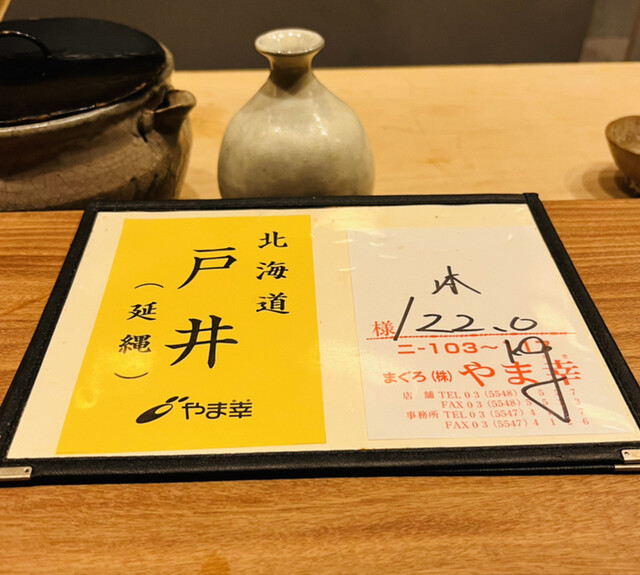 北海道
戸井
(延縄)
やま幸
本
様
122.0
Kg
ニ-103~
まぐろ(株)やま幸
店舗 TEL 03 (5548)
FAX 03 (5548)
事務所 TEL 03 (5547)
FAX 03 (5547)